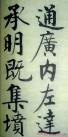 通廣內左達
承明既集墳